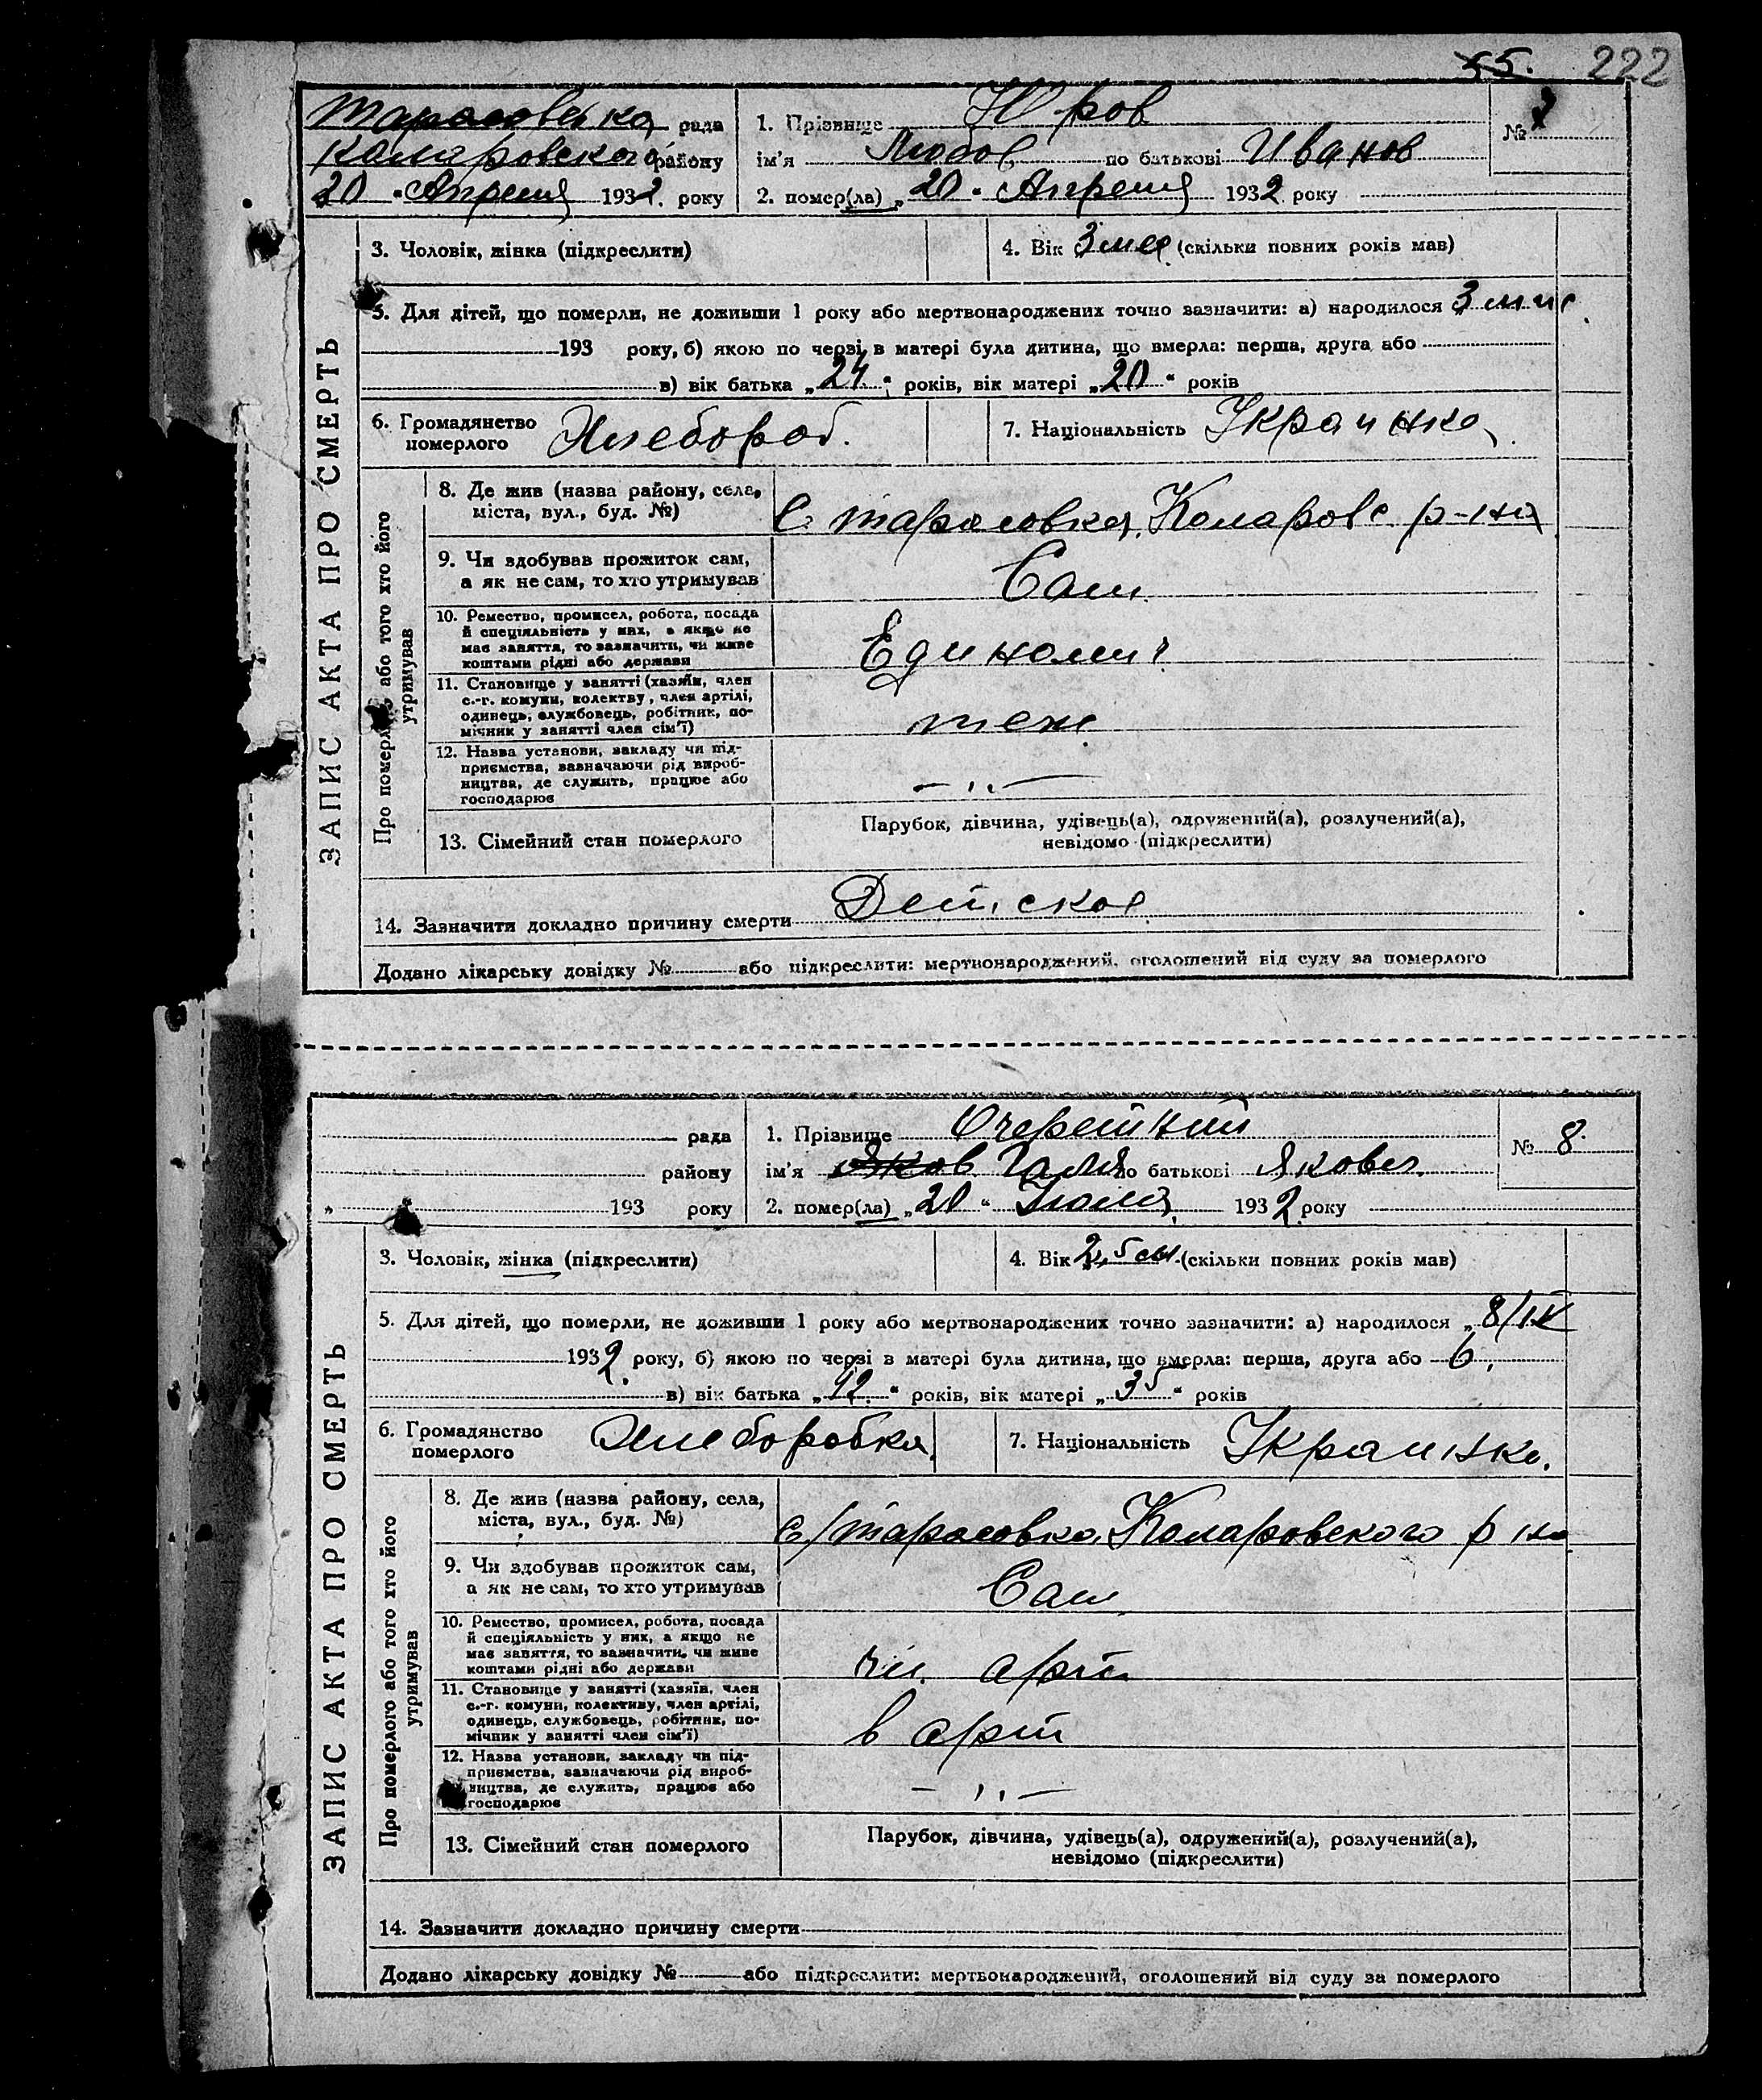 55. 222
Тарасовка рада
Коларовского району
20 "Апреля 1932. року
1. Прізвище Юров
№ 7
ім'я Любов по батькові Иванов
2. помер(ла) „20" Апреля 1932 року
3. Чоловік, жінка (підкреслити)
4. Вік 3 мес. (скільки повних років мав)
5. Для дітей, що померли, не доживши 1 року або мертвонароджених точно зазначити: а) народилося „3 мис.
193 року, б) якою по черзі в матері була дитина, що вмерла: перша, друга або
в) вік батька „24" років, вік матері „20" років
6. Громадянство
померлого Хлебороб.
7. Національність Украинка.
ЗАПИС АКТА ПРО СМЕРТЬ
Про або того хто його
утримував
8. Де жив (назва району, села,
міста, вул., буд. №)
С. Тарасовка, Коларовс р-на
9. Чи здобував прожиток сам,
а як не сам, то хто утримував
Сам.
10. Ремество, промисел, робота, посада
й спеціяльність у них, а якщо не
має заняття, то зазначити, чи живе
коштами рідні або держави
Единолич.
11. Становище у занятті (хазяїн, член
с.-г. комуни, колективу, член артілі,
одинець, службовець, робітник, по-
мічник у занятті член сім'ї)
теж.
12. Назва установи, закладу чи під-
приємства, зазначаючи рід вироб-
ництва, де служить, працює або
господарює
— „ —
13. Сімейний стан померлого
Парубок, дівчина, удівець(а), одружений(а), розлучений(а),
невідомо (підкреслити)
14. Зазначити докладно причину смерти Детское.
Додано лікарську довідку № або підкреслити: мертвонароджений, оголошений від суду за померлого
рада
району
„ 193 року
1. Прізвище Очеретний
№ 8.
ім'я Яков Галля по батькові Яковл.
2. помер(ла) „20" Июля. 1932 року
3. Чоловік, жінка (підкреслити)
4. Вік 2,5 м. (скільки повних років мав)
5. Для дітей, що померли, не доживши 1 року або мертвонароджених точно зазначити: а) народилося „8/IV
1932. року, б) якою по черзі в матері була дитина, що вмерла: перша, друга або 6.
в) вік батька „42" років, вік матері „35" років
6. Громадянство
померлого Хлеборобка.
7. Національність Украинка.
ЗАПИС АКТА ПРО СМЕРТЬ
Про померлого або того хто його
утримував
8. Де жив (назва району, села,
міста, вул., буд. №)
С/Тарасовка, Коларовского р-на
9. Чи здобував прожиток сам,
а як не сам, то хто утримував
Сам.
10. Ремество, промисел, робота, посада
й спеціяльність у них, а якщо не
має заняття, то зазначити, чи живе
коштами рідні або держави
чл. арт.
11. Становище у занятті (хазяїн, член
с.-г. комуни, колективу, член артілі,
одинець, службовець, робітник, по-
мічник у занятті член сім'ї)
в арт
12. Назва установи, закладу чи під-
приємства, зазначаючи рід вироб-
ництва, де служить, працює або
господарює
— „ —
13. Сімейний стан померлого
Парубок, дівчина, удівець(а), одружений(а), розлучений(а),
невідомо (підкреслити)
14. Зазначити докладно причину смерти
Додано лікарську довідку № або підкреслити: мертвонароджений, оголошений від суду за померлого